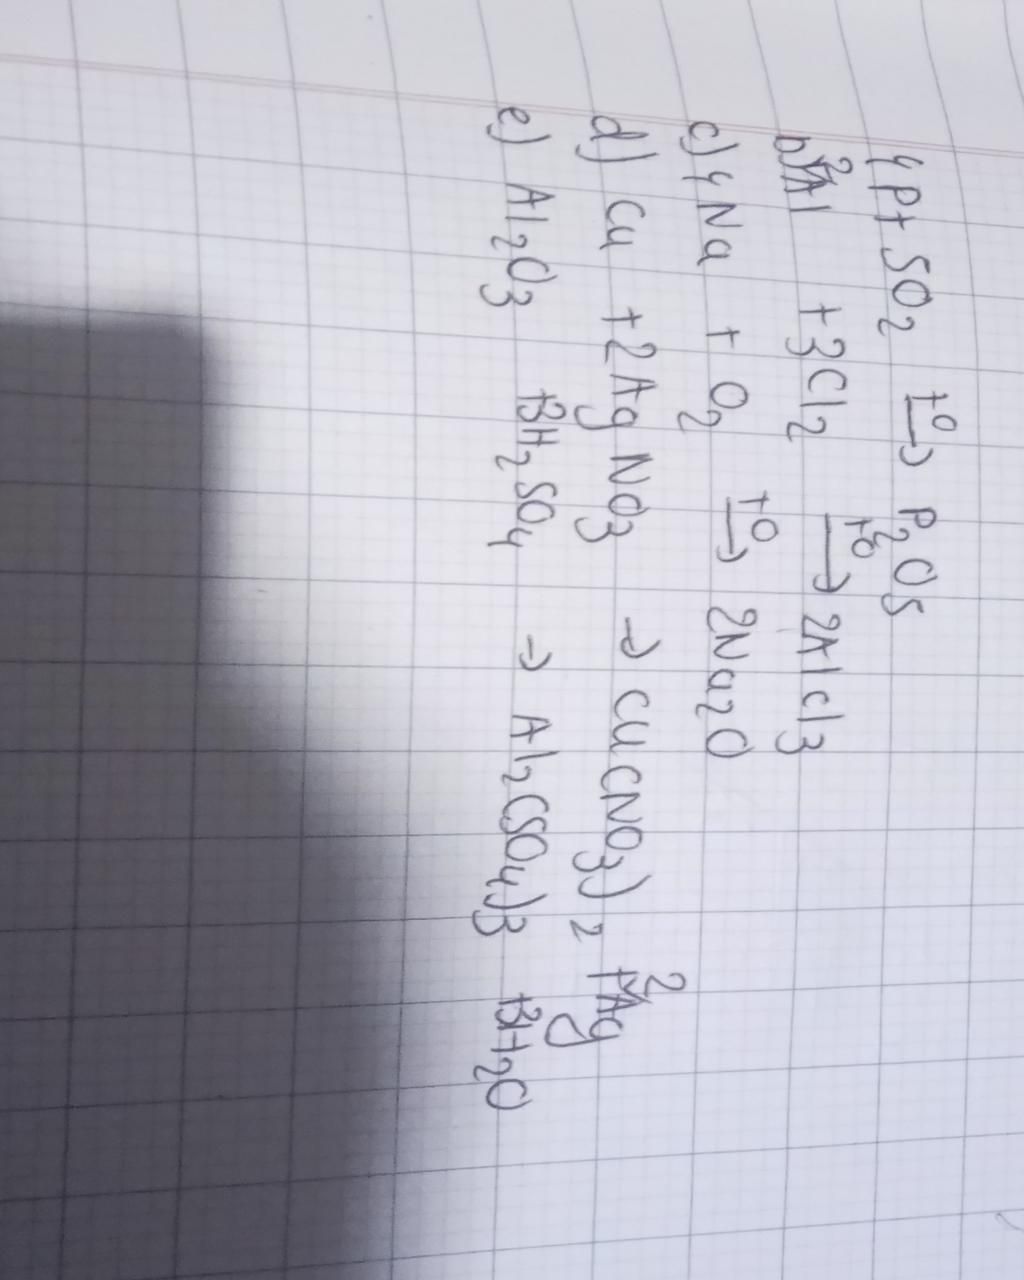 4P + 5O2 t0→ P2O5
b) 2Al + 3Cl2 t0→ 2AlCl3
c) 4Na + O2 t0→ 2Na2O
d) Cu + 2AgNO3 → Cu(NO3)2 + 2Ag
e) Al2O3 + 3H2SO4 → Al2(SO4)3 + 3H2O